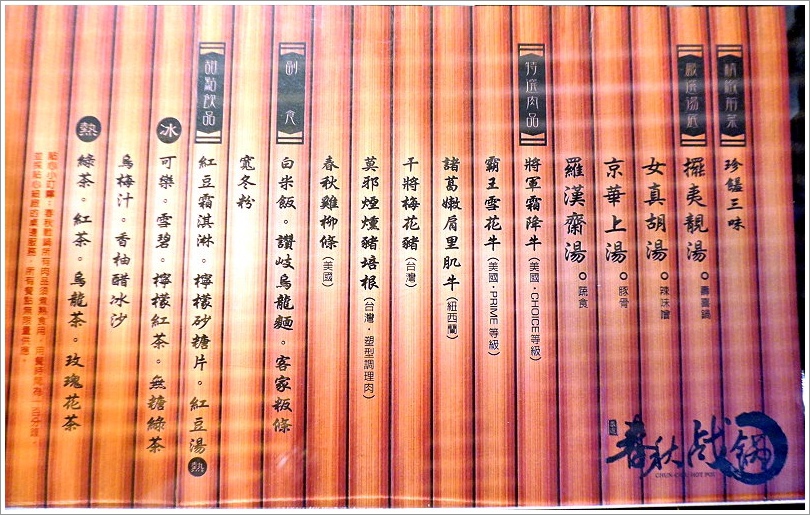 精緻前菜
珍饈三味
嚴選湯底
擺夷靚湯。壽喜鍋
女真胡湯。辣味噌
京華上湯。豚骨
羅漢齋湯。蔬食
特選肉品
將軍霜降牛(美國・CHOICE等級)
霸王雪花牛(美國・PRIME等級)
諸葛嫩肩里肌牛(紐西蘭)
干將梅花豬(台灣)
莫邪煙燻豬培根(台灣・塑型調理肉)
春秋雞柳條(美國)
副食
白米飯。讚岐烏龍麵。客家粄條
寬冬粉
甜點飲品
紅豆霜淇淋。檸檬砂糖片。紅豆湯 熱
冰
可樂。雪碧。檸檬紅茶。無糖綠茶
烏梅汁。香柚醋冰沙
熱
綠茶。紅茶。烏龍茶。玫瑰花茶
貼心小叮嚀：春秋戰鍋所有肉品須煮熟食用，用餐時間為一百分鐘，
並採貼心細緻的桌邊服務，所有餐點無限量供應。
春秋戰鍋
CHUN-CIOU HOT POT